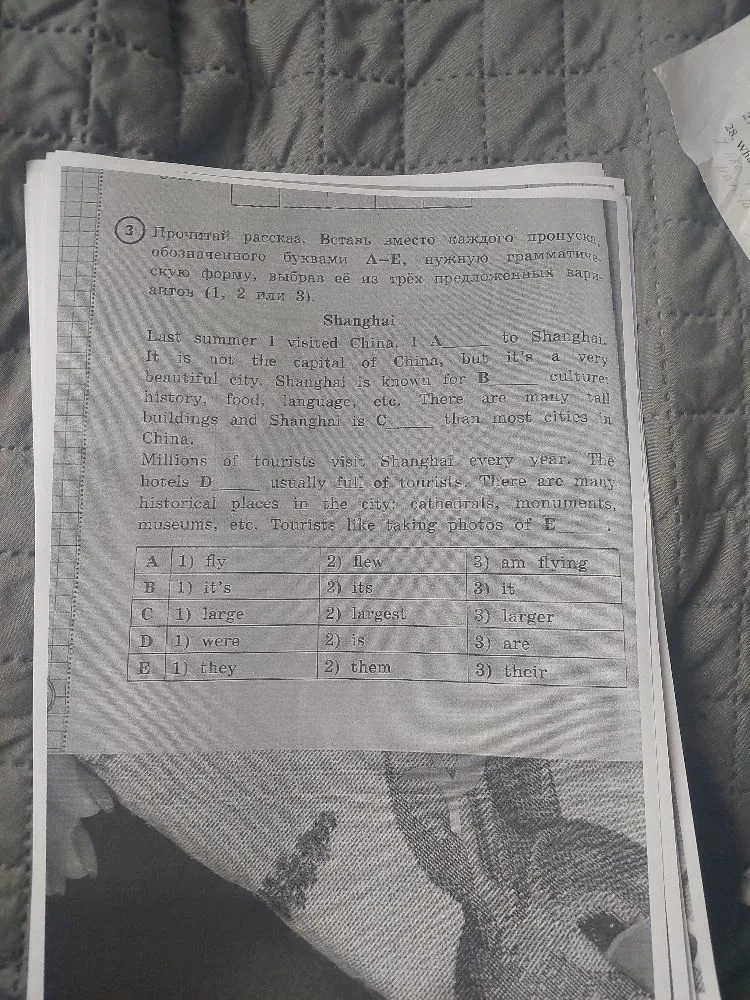 3 Прочитай рассказ. Вставь вместо каждого пропуска,
обозначенного буквами А–Е, нужную грамматиче-
скую форму, выбрав её из трёх предложенных вари-
антов (1, 2 или 3).
Shanghai
Last summer I visited China. I A_____ to Shanghai.
It is not the capital of China, but it's a very
beautiful city. Shanghai is known for B_____ culture:
history, food, language, etc. There are many tall
buildings and Shanghai is C_____ than most cities in
China.
Millions of tourists visit Shanghai every year. The
hotels D_____ usually full of tourists. There are many
historical places in the city: cathedrals, monuments,
museums, etc. Tourists like taking photos of E_____.
A 1) fly 2) flew 3) am flying
B 1) it's 2) its 3) it
C 1) large 2) largest 3) larger
D 1) were 2) is 3) are
E 1) they 2) them 3) their
28.